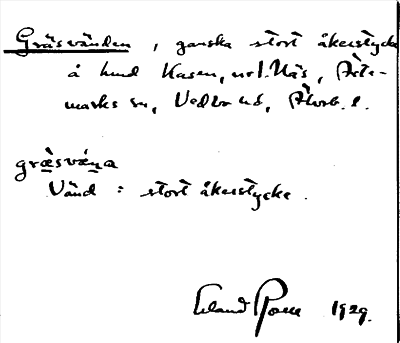 Gräsvänden, ganska stort åkerstycke
å hmd Kasen, nr 1. Näs, Åte-
marks sn, Vedbo hd, Älvsb. l.
gräsväna
Vänd : stort åkerstycke.
Erland Rosell 1929.